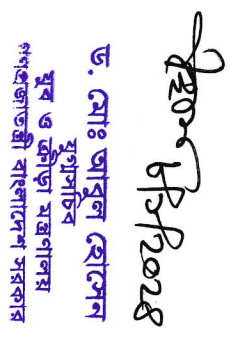 ড. মোঃ আবুল হোসেন
যুগ্মসচিব
যুব ও ক্রীড়া মন্ত্রণালয়
গণপ্রজাতন্ত্রী বাংলাদেশ সরকার